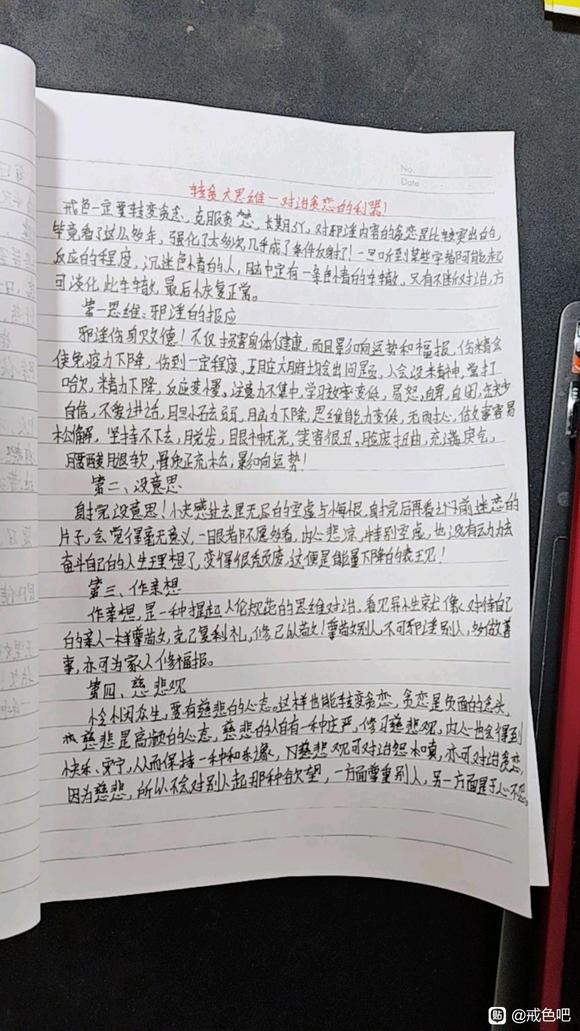 No.
Date
转贪大思维—对治贪恋的利器!
戒色一定要转变贪恋,克服贪恋,长期SY,对邪淫内容的贪恋是比较突出的,
毕竟看了这么多年,强化了太多次几乎成了条件反射了!一旦听到某些字都可能起
反应的程度,沉迷色情的人,脑中定有一条色情的车辙,只有不断对治,方
可淡化此车辙,最后恢复正常。
第一思维:邪淫的报应
邪淫伤身败德!不仅损害身体健康,而且影响运势和福报,伤精会
使免疫力下降,伤到一定程度,五脏六腑均会出问题,人会没精神,常打
哈欠,精力下降,反应变慢,注意力不集中,学习效率变低,易怒,自卑,自闭,缺少
自信,不爱讲话,胆小怯弱,脑力下降,思维能力变低,无耐心,做事容易
松懈,坚持不下去,脱发,眼神无光,笑容很丑,脸庞扭曲,充满戾气,
腰酸腿软,骨质疏松,影响运势!
第二、没意思
射完没意思!小快感过去是无尽的空虚与悔恨,射完后再看之前迷恋的
片子,会觉得毫无意义,一眼都不愿多看,内心悲凉,特别空虚,也没有动力去
奋斗自己的人生理想了,变得很颓废,这便是能量下降的表现!
第三、作亲想
作亲想,是一种提起人伦规范的思维对治,看见异性家犬像对待自己
的亲人一样尊敬,克己复礼,修己以敬!尊敬别人不可邪淫别人,多做善
事,亦可为家人修福报。
第四、慈悲观
怜悯众生,要有慈悲的心态。这样也能转变贪恋,贪恋是负面的念头,
慈悲是高频的心态,慈悲的人自有一种庄严,修习慈悲观,内心也会得到
快乐、安宁,从而保持一种和乐,慈悲观可对治怨恨嗔,亦可对治贪恋,
因为慈悲,所以不会对别人起那种欲望,一方面尊重别人,另一方面是于心不忍。
贴 @戒色吧